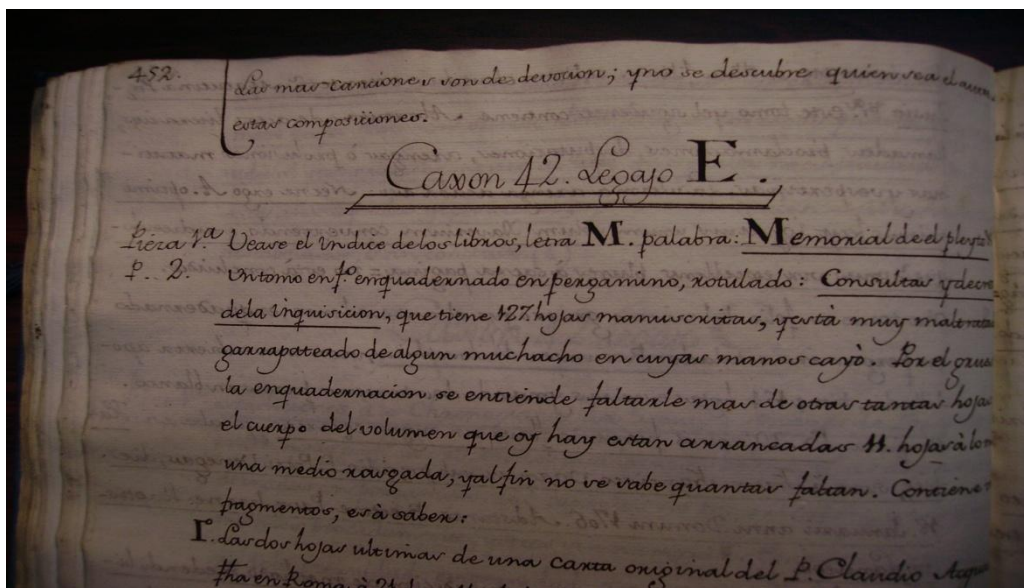 452.
Las mas canciones son de devocion; y no se descubre quien sea el
estas composiciones.
Caxon 42. Legajo E.
Pieza 1.ª Vease el indice de los libros, letra M. palabra: Memorial de el pleyto
P. 2. Un tomo en f.º enquadernado en pergamino, rotulado: Consultas y decre
de la inquisicion, que tiene 127. hojas manuscritas, y està muy maltrata
garrapateado de algun muchacho en cuyas manos cayò. Por el grues
la enquadernacion se entiende faltarle mas de otras tantas hojas
el cuerpo del volumen que oy hay estan arrancadas 11. hojas à lo m
una medio rasgada, y al fin no se sabe quantas faltan. Contiene
fragmentos, es à saber:
I. Las dos hojas ultimas de una carta original del P. Claudio Aqua
fha en Roma à